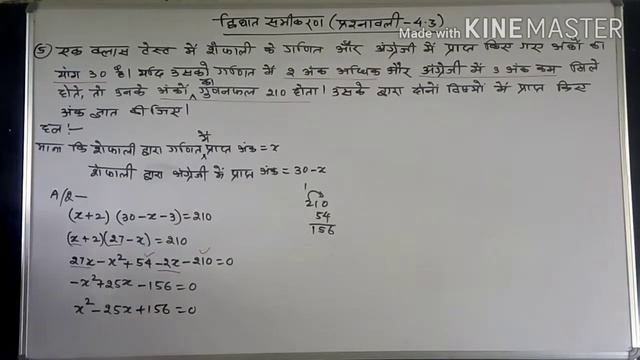 Made with KINEMASTER
द्विघात समीकरण (प्रश्नावली-4.3)
⑤ एक क्लास टेस्ट में शेफाली के गणित और अंग्रेजी में प्राप्त किए गए अंकों का
योग 30 है। यदि उसको गणित में 2 अंक अधिक और अंग्रेजी में 3 अंक कम मिले
होते, तो उनके अंकों का गुणनफल 210 होता। उसके द्वारा दोनों विषयों में प्राप्त किए
अंक ज्ञात कीजिए।
हल:-
माना कि शेफाली द्वारा गणित में प्राप्त अंक = x
शेफाली द्वारा अंग्रेजी में प्राप्त अंक = 30-x
A/2-
(x+2) (30-x-3)=210
(x+2)(27-x)=210
27x-x²+54-2x-210=0
-x²+25x-156=0
x²-25x+156=0
210
54
156